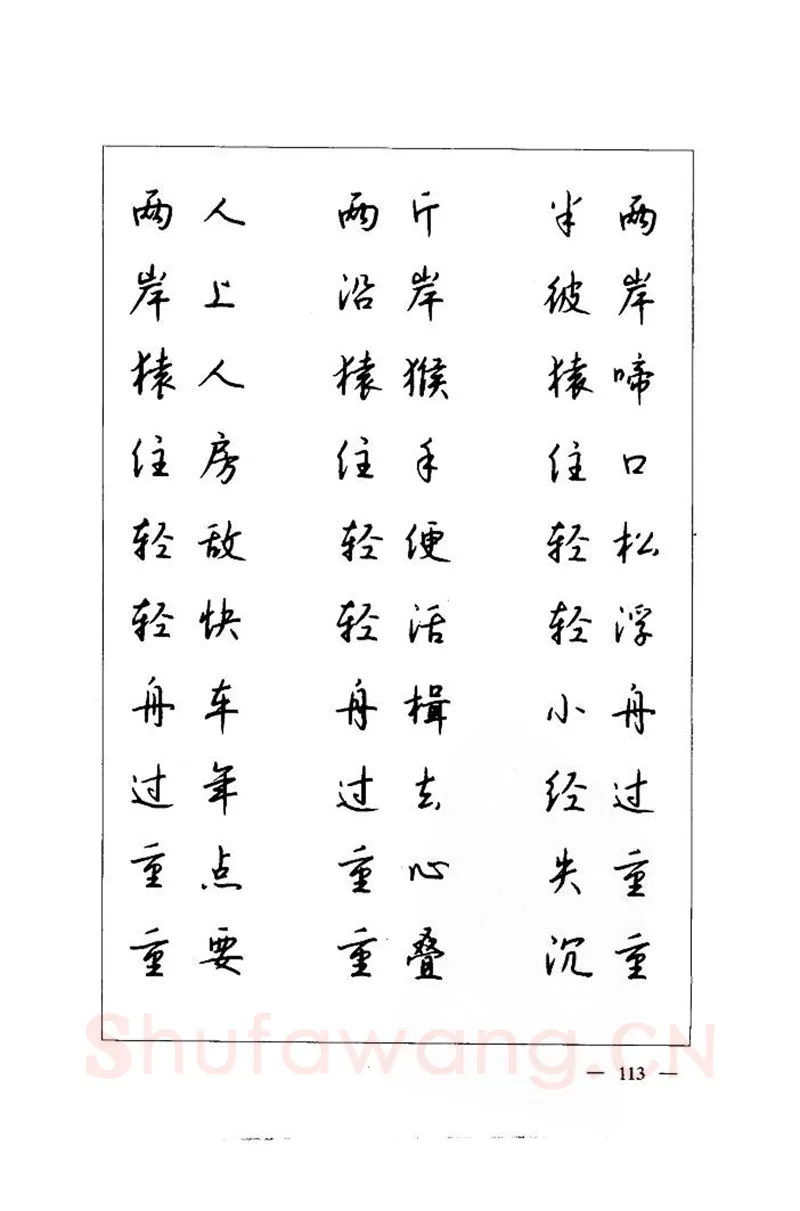 两岸啼口松浮舟过重重
半彼猿住轻轻小经失沉
斤岸猴手便活楫去心叠
两沿猿住轻轻舟过重重
人上人房敌快车年点要
两岸猿住轻轻舟过重重
— 113 —
Shufawang.CN